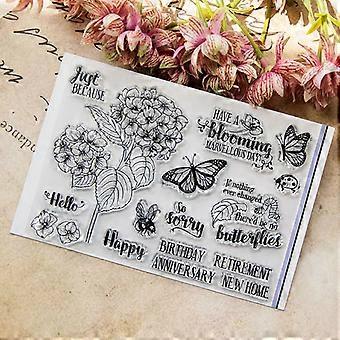 Just
BECAUSE
HAVE A
Blooming
MARVELLOUS DAY
Hello
So
Sorry
If nothing
ever changed
there'd be no
butterflies
Happy
BIRTHDAY
ANNIVERSARY
RETIREMENT
NEW HOME